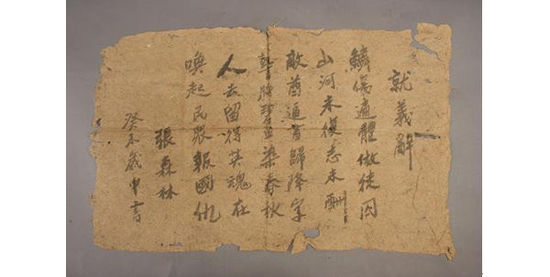 就義辭
鱗傷遍體做徒囚
山河未復志未酬
敵酋逼書歸降字
碧血染春秋
人去留得其魂在
喚起民眾報國仇
張森林
癸未歲申書